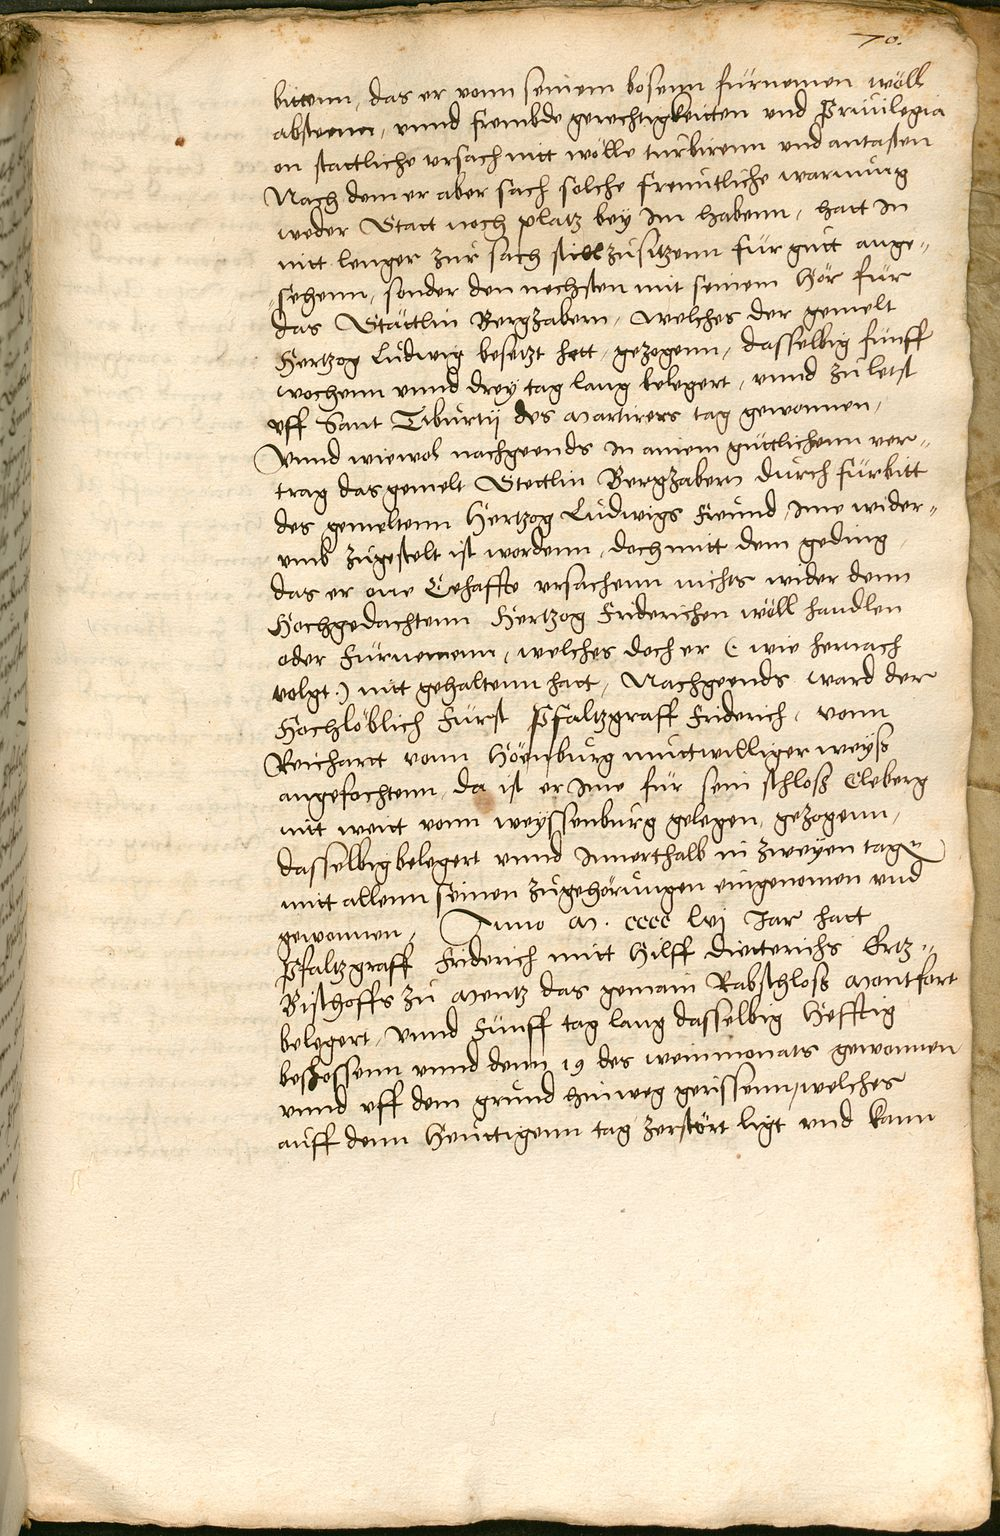 70.
bittenn, das er vonn seinem bösenn fürnemen wöll
absteenn, vnnd frembde gerechtigkeitten vnd Priuilegia
on stattliche vrsach nitt wölle turbirenn vnd antasten
Nach dem er aber sach solche freuntliche warnung
weder Statt noch platz bey im habenn, hatt in
nitt lenger zur sach still zusitzenn für gutt ange-
sehenn, sonder den nechsten mit seinem Hör für
das Stättlin Bergzabern, welches der gemelt
Hertzog Ludwig besetzt hett, gezogenn, dasselbig fünff
wochenn vnnd drey tag lang belegert, vnnd zu letst
vff Sant Tiburtij des Martirers tag gewonnen,
Vnnd wiewol nachgeends in ainem güttlichenn ver-
trag das gemelt Stettlin Bergzabern durch fürbitt
des gemeltenn Hertzog Ludwigs Freund, ime wider-
umb zugestelt ist wordenn, doch mitt dem geding
das er one Eehaffte vrsachenn nichts wider denn
Hochgedachtenn Hertzog Friderichen wöll handlen
oder Fürnemenn, welches doch er (wie hernach
volgt.) nitt gehaltenn hatt, Nachgeends ward der
Hochlöblich Fürst Pfaltzgraff Friderich, vonn
Reichart vonn Höenburg muttwilliger weyß
angefochtenn, da ist er ime für sein schloß Cleberg
nitt weitt vonn weyssenburg gelegen, gezogenn,
dasselbig belegert vnnd innerthalb in zweyen tagen
mitt allenn seinen zugehörungen eingenomen vnd
gewonnen, Anno M. cccc lvj Jar hatt
Pfaltzgraff Friderich mitt Hilff Dietterichs Ertz-
Bischoffs zu Mentz das gemain Rabschloß Montfort
belegert, vnnd Fünff tag lang dasselbig Hefftig
beschossenn vnnd denn 19 des weinmonats gewonnen
vnnd vff dem grund hinweg gerissenn, welches
auff denn Heuttigenn tag zerstört ligt vnd kann